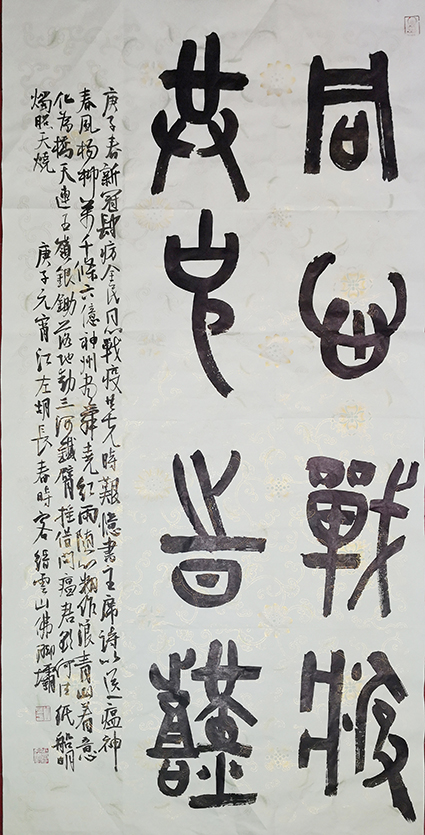 同心戰疫
共克旹囏
庚子春新冠肆疠全民同心戰疫共克時艱憶書主席詩以送瘟神
春風楊柳萬千條六億神州盡舜堯紅雨隨心翻作浪青山着意
化為橋天連五嶺銀鋤落地動三河鐵臂搖借問瘟君欲何往紙船明
燭照天燒 庚子元宵江左胡長春時客縉雲山佛腳壩